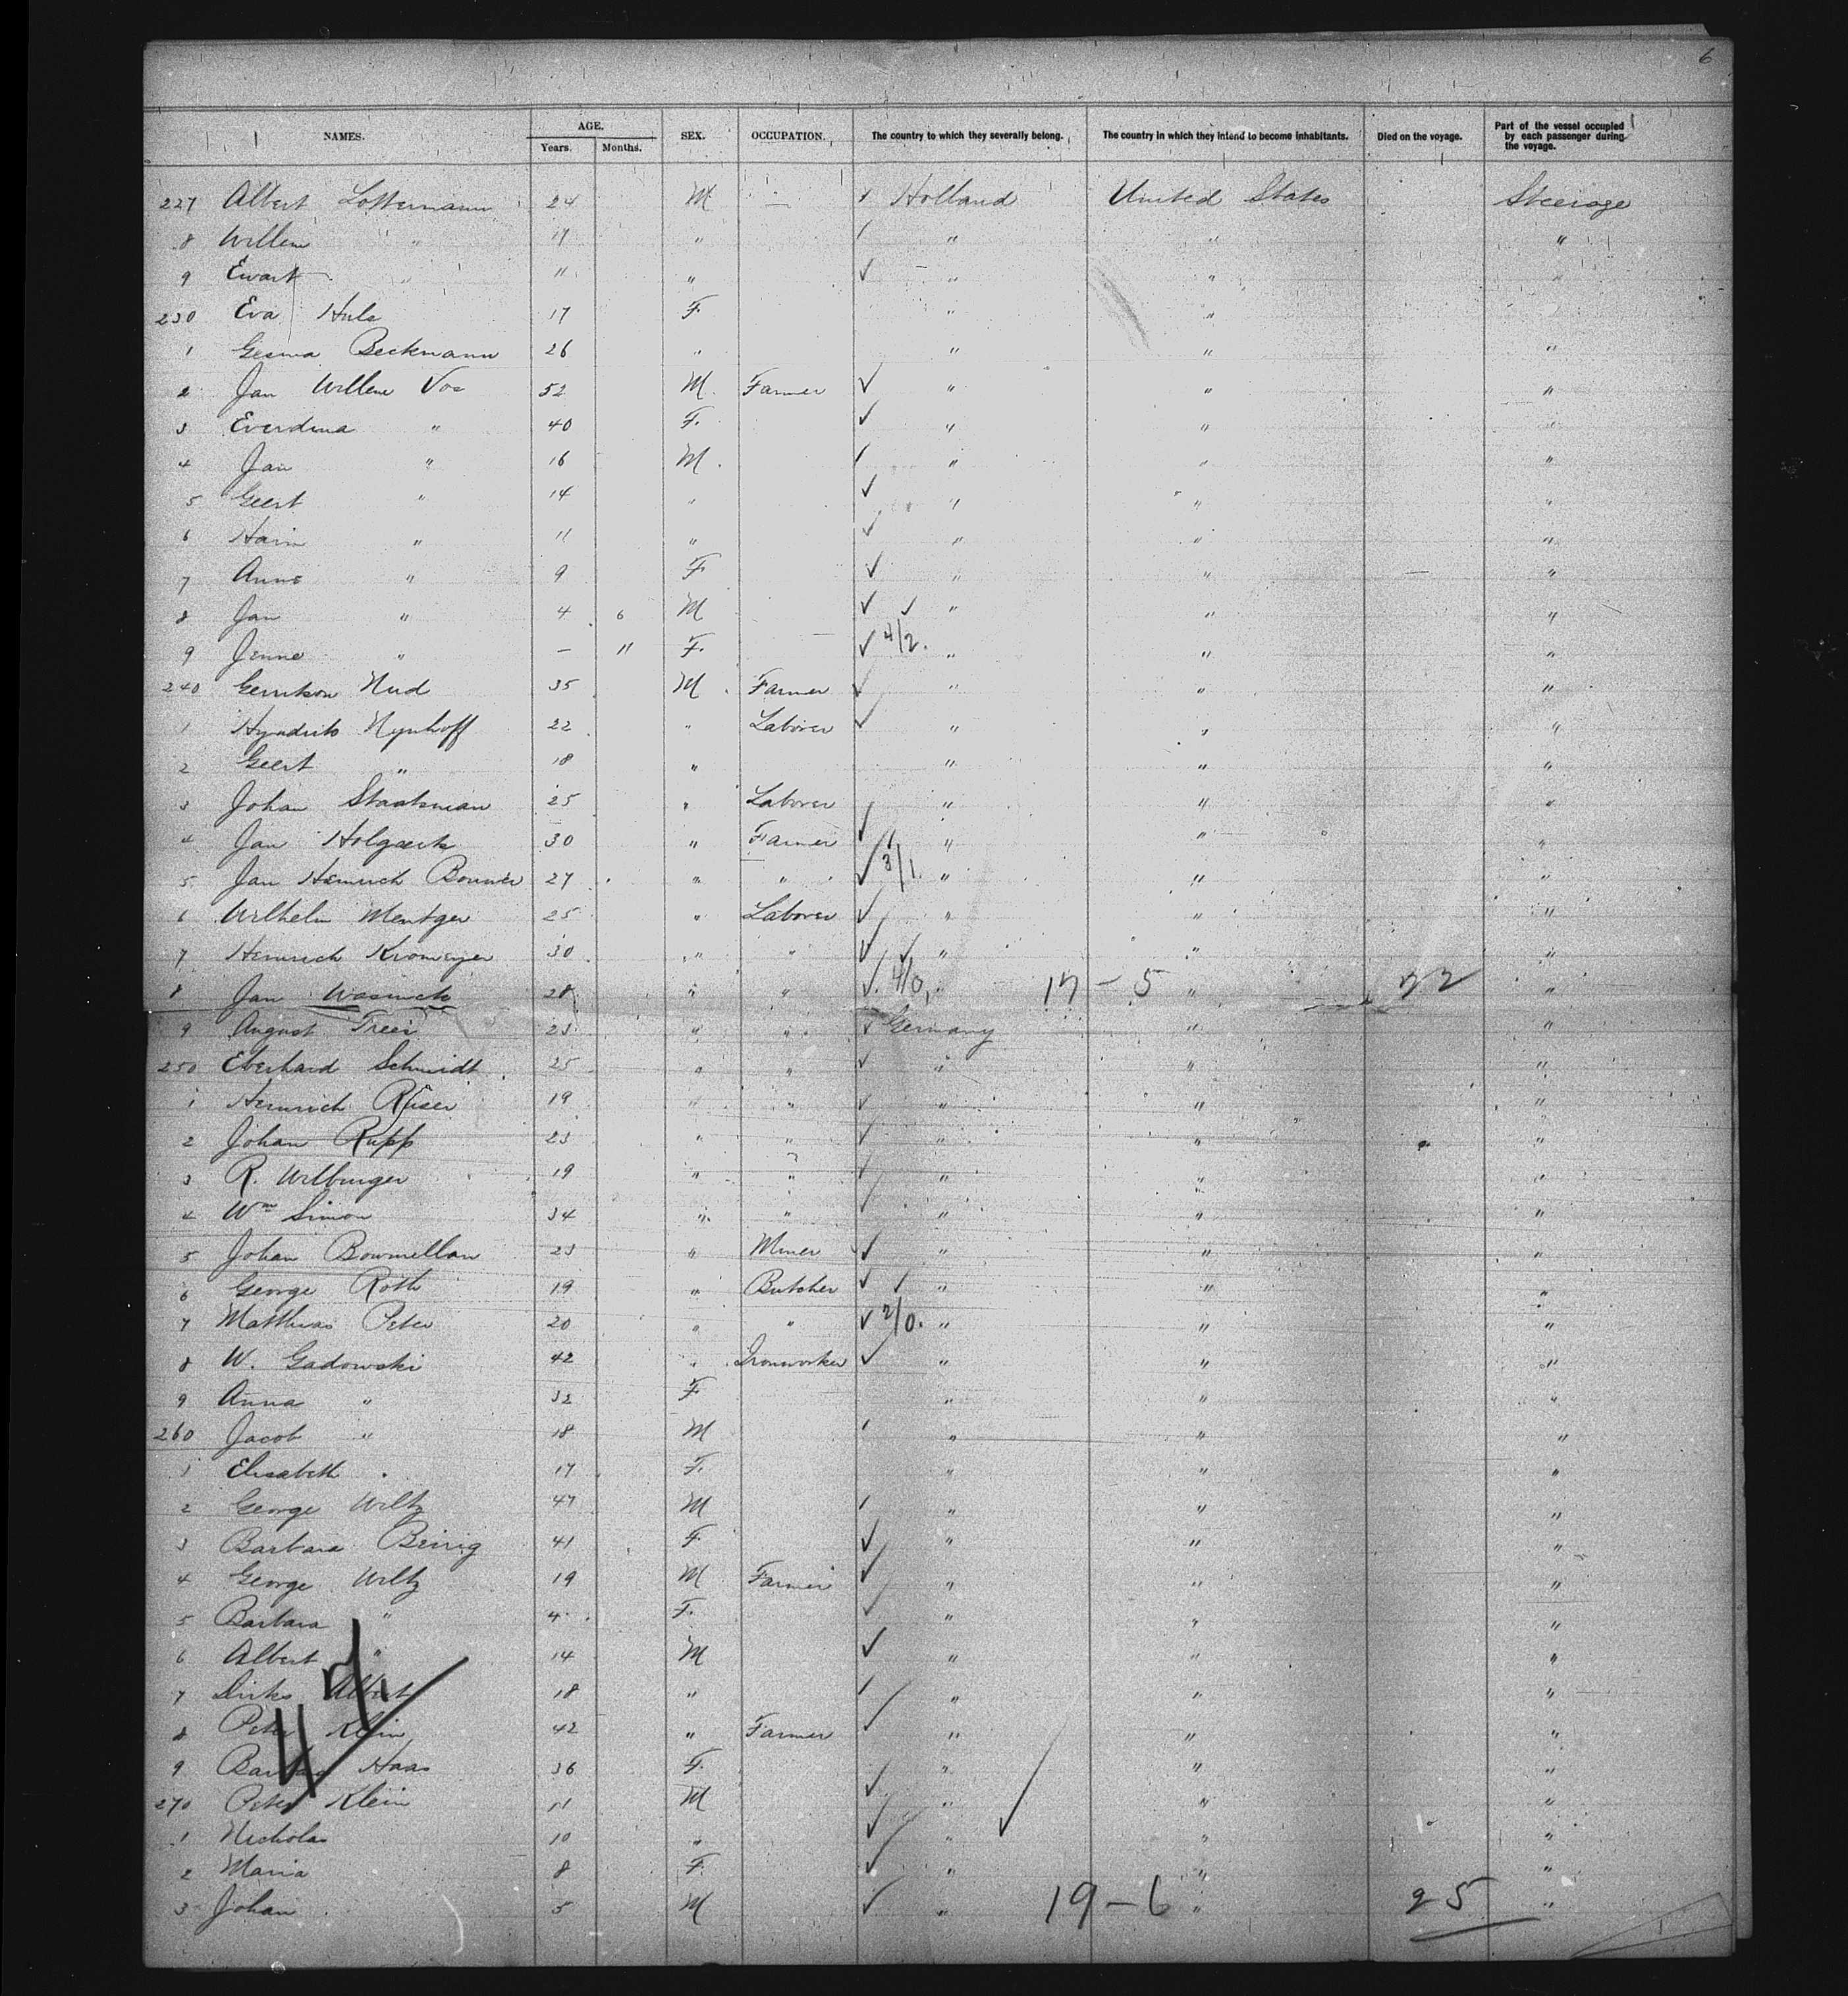 6
NAMES. AGE. Years. Months. SEX. OCCUPATION. The country to which they severally belong. The country in which they intend to become inhabitants. Died on the voyage. Part of the vessel occupied by each passenger during the voyage.
227 Albert Lottermann 24 M — Holland United States Steerage
8 Willem " 17 " " " "
9 Ewart " 11 " " " "
230 Eva Huls 17 F. " "
1 Gesina Beckmann 26 " " " "
2 Jan Willem Vos 52 M. Farmer " " "
3 Everdina " 40 F. " " "
4 Jan " 16 M. " " "
5 Geert " 14 " " " "
6 Hain " 11 " " " "
7 Anne " 9 F " " "
8 Jan " 4 6 M " " "
9 Jenne " — 11 F. 4/2. " " "
240 Gerritson Nud 35 M Farmer " " "
1 Hyndrik Nynhoff 22 " Laborer " " "
2 Geert " 18 " " " "
3 Johan Staatsman 25 " Laborer " " "
4 Jan 30 " Farmer " " "
5 Jan Heinrich 27 " " 3/1. " " "
6 Wilhelm Mentger 25 " Laborer " " "
7 Heinrich Kromeyer 30 " " " " "
8 Jan 28 " " 4/0, " 17 - 5 " 22 "
9 August 23 " " Germany " "
250 Eberhard Schmidt 25 " " " " "
1 Heinrich 19 " " " " "
2 Johan Rupp 23 " " " " "
3 R. Wilburger 19 " " " " "
4 Wm Simon 34 " " " " "
5 Johan Bowmellan 23 " Miner " " "
6 George Roth 19 " Butcher " " "
7 Matthias Peter 20 " " 2/0. " " "
8 W. Gadowski 42 " Ironworker " " "
9 Anna " 32 F " " "
260 Jacob " 18 M " " "
1 Elisabeth " 17 F. " " "
2 George Wiltz 47 M " " "
3 Barbara Beinig 41 F. " " "
4 George Wiltz 19 M Farmer " " "
5 Barbara " 4 F. " " "
6 Albert " 14 M " " "
7 Dirks Albert 18 " " " "
8 Peter Klein 42 " Farmer " " "
9 Barbara Haas 36 F. " " "
270 Peter Klein 11 M " " "
1 Nicholas 10 " " " "
2 Maria 8 F. " " "
3 Johan 5 M " 19 - 6 " 25 "